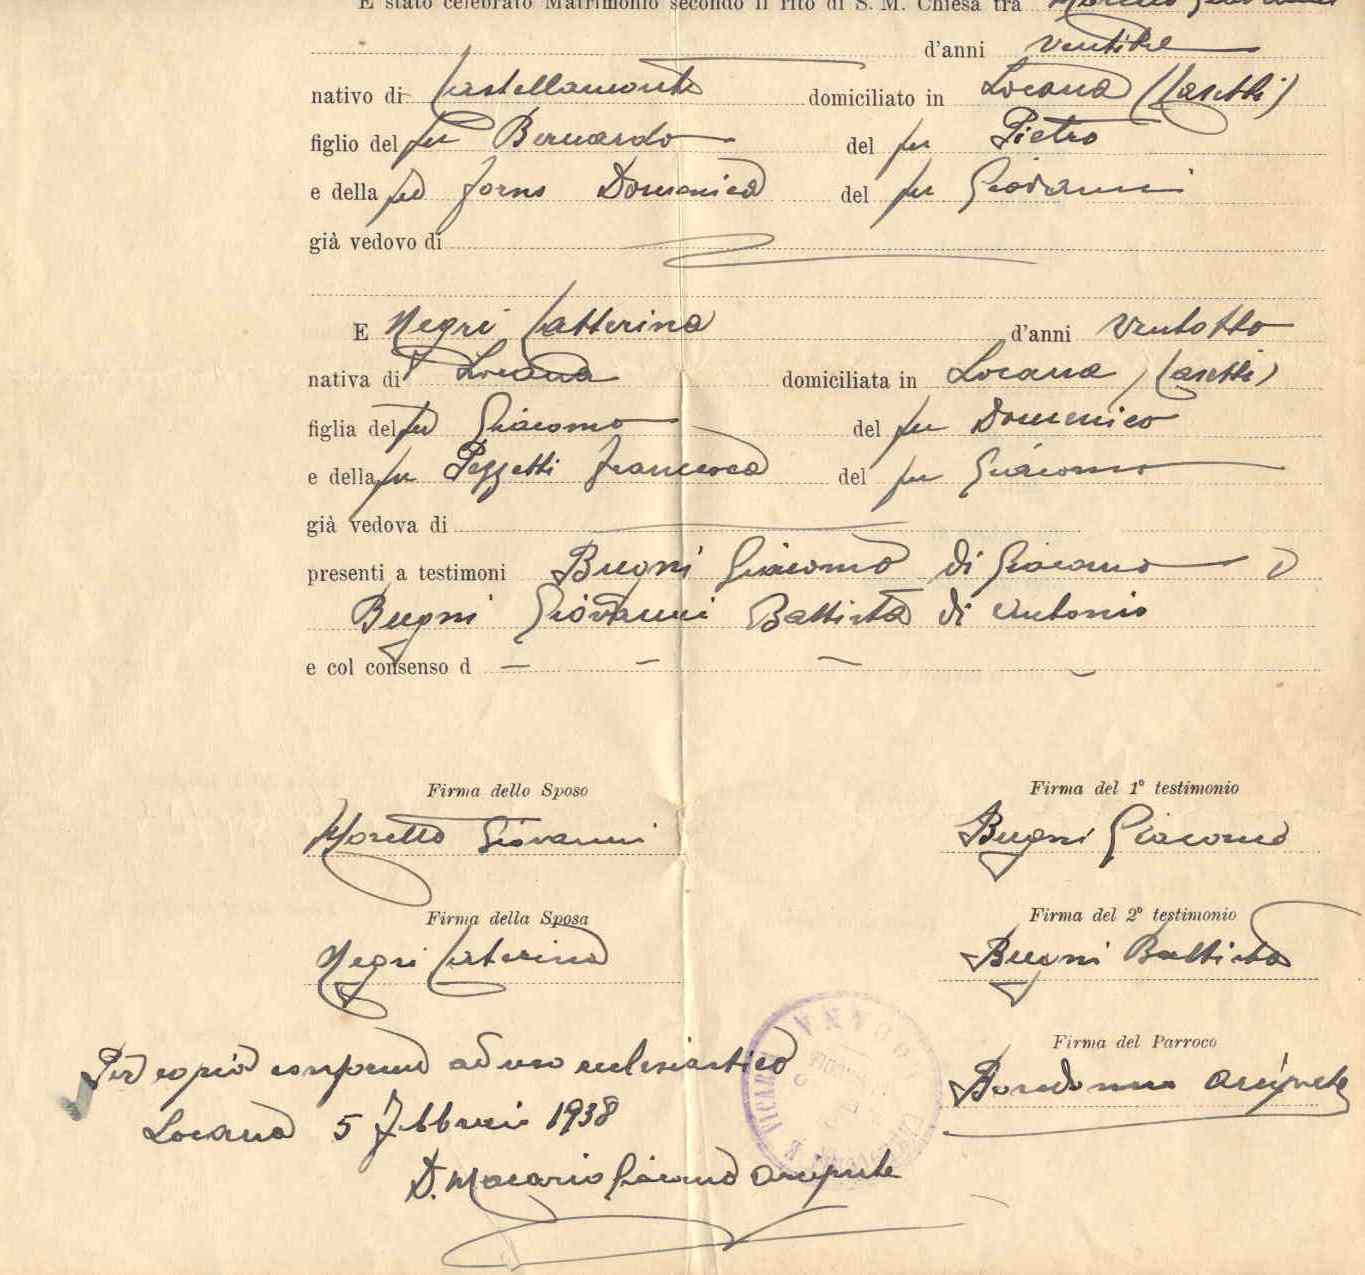 È stato celebrato Matrimonio secondo il rito di S. M. Chiesa tra Moretto Giovanni
d'anni ventitre
nativo di Castellamonte domiciliato in Locana (Casetti)
figlio del fu Bernardo del fu Pietro
e della fu Forno Domenica del fu Giovanni
già vedovo di
E Negri Catterina d'anni ventotto
nativa di Locana domiciliata in Locana (Casetti)
figlia del fu Giacomo del fu Domenico
e della fu Pezzetti Francesca del fu Giacomo
già vedova di
presenti a testimoni Bugni Giacomo di Giacomo
Bugni Giovanni Battista di Antonio
e col consenso d — — —
Firma dello Sposo Firma del 1° testimonio
Moretto Giovanni Bugni Giacomo
Firma della Sposa Firma del 2° testimonio
Negri Caterina Bugni Battista
Firma del Parroco
Per copia conforme ad uso ecclesiastico
arciprete
Locana 5 Febbraio 1938
D. Macario Giacomo arciprete